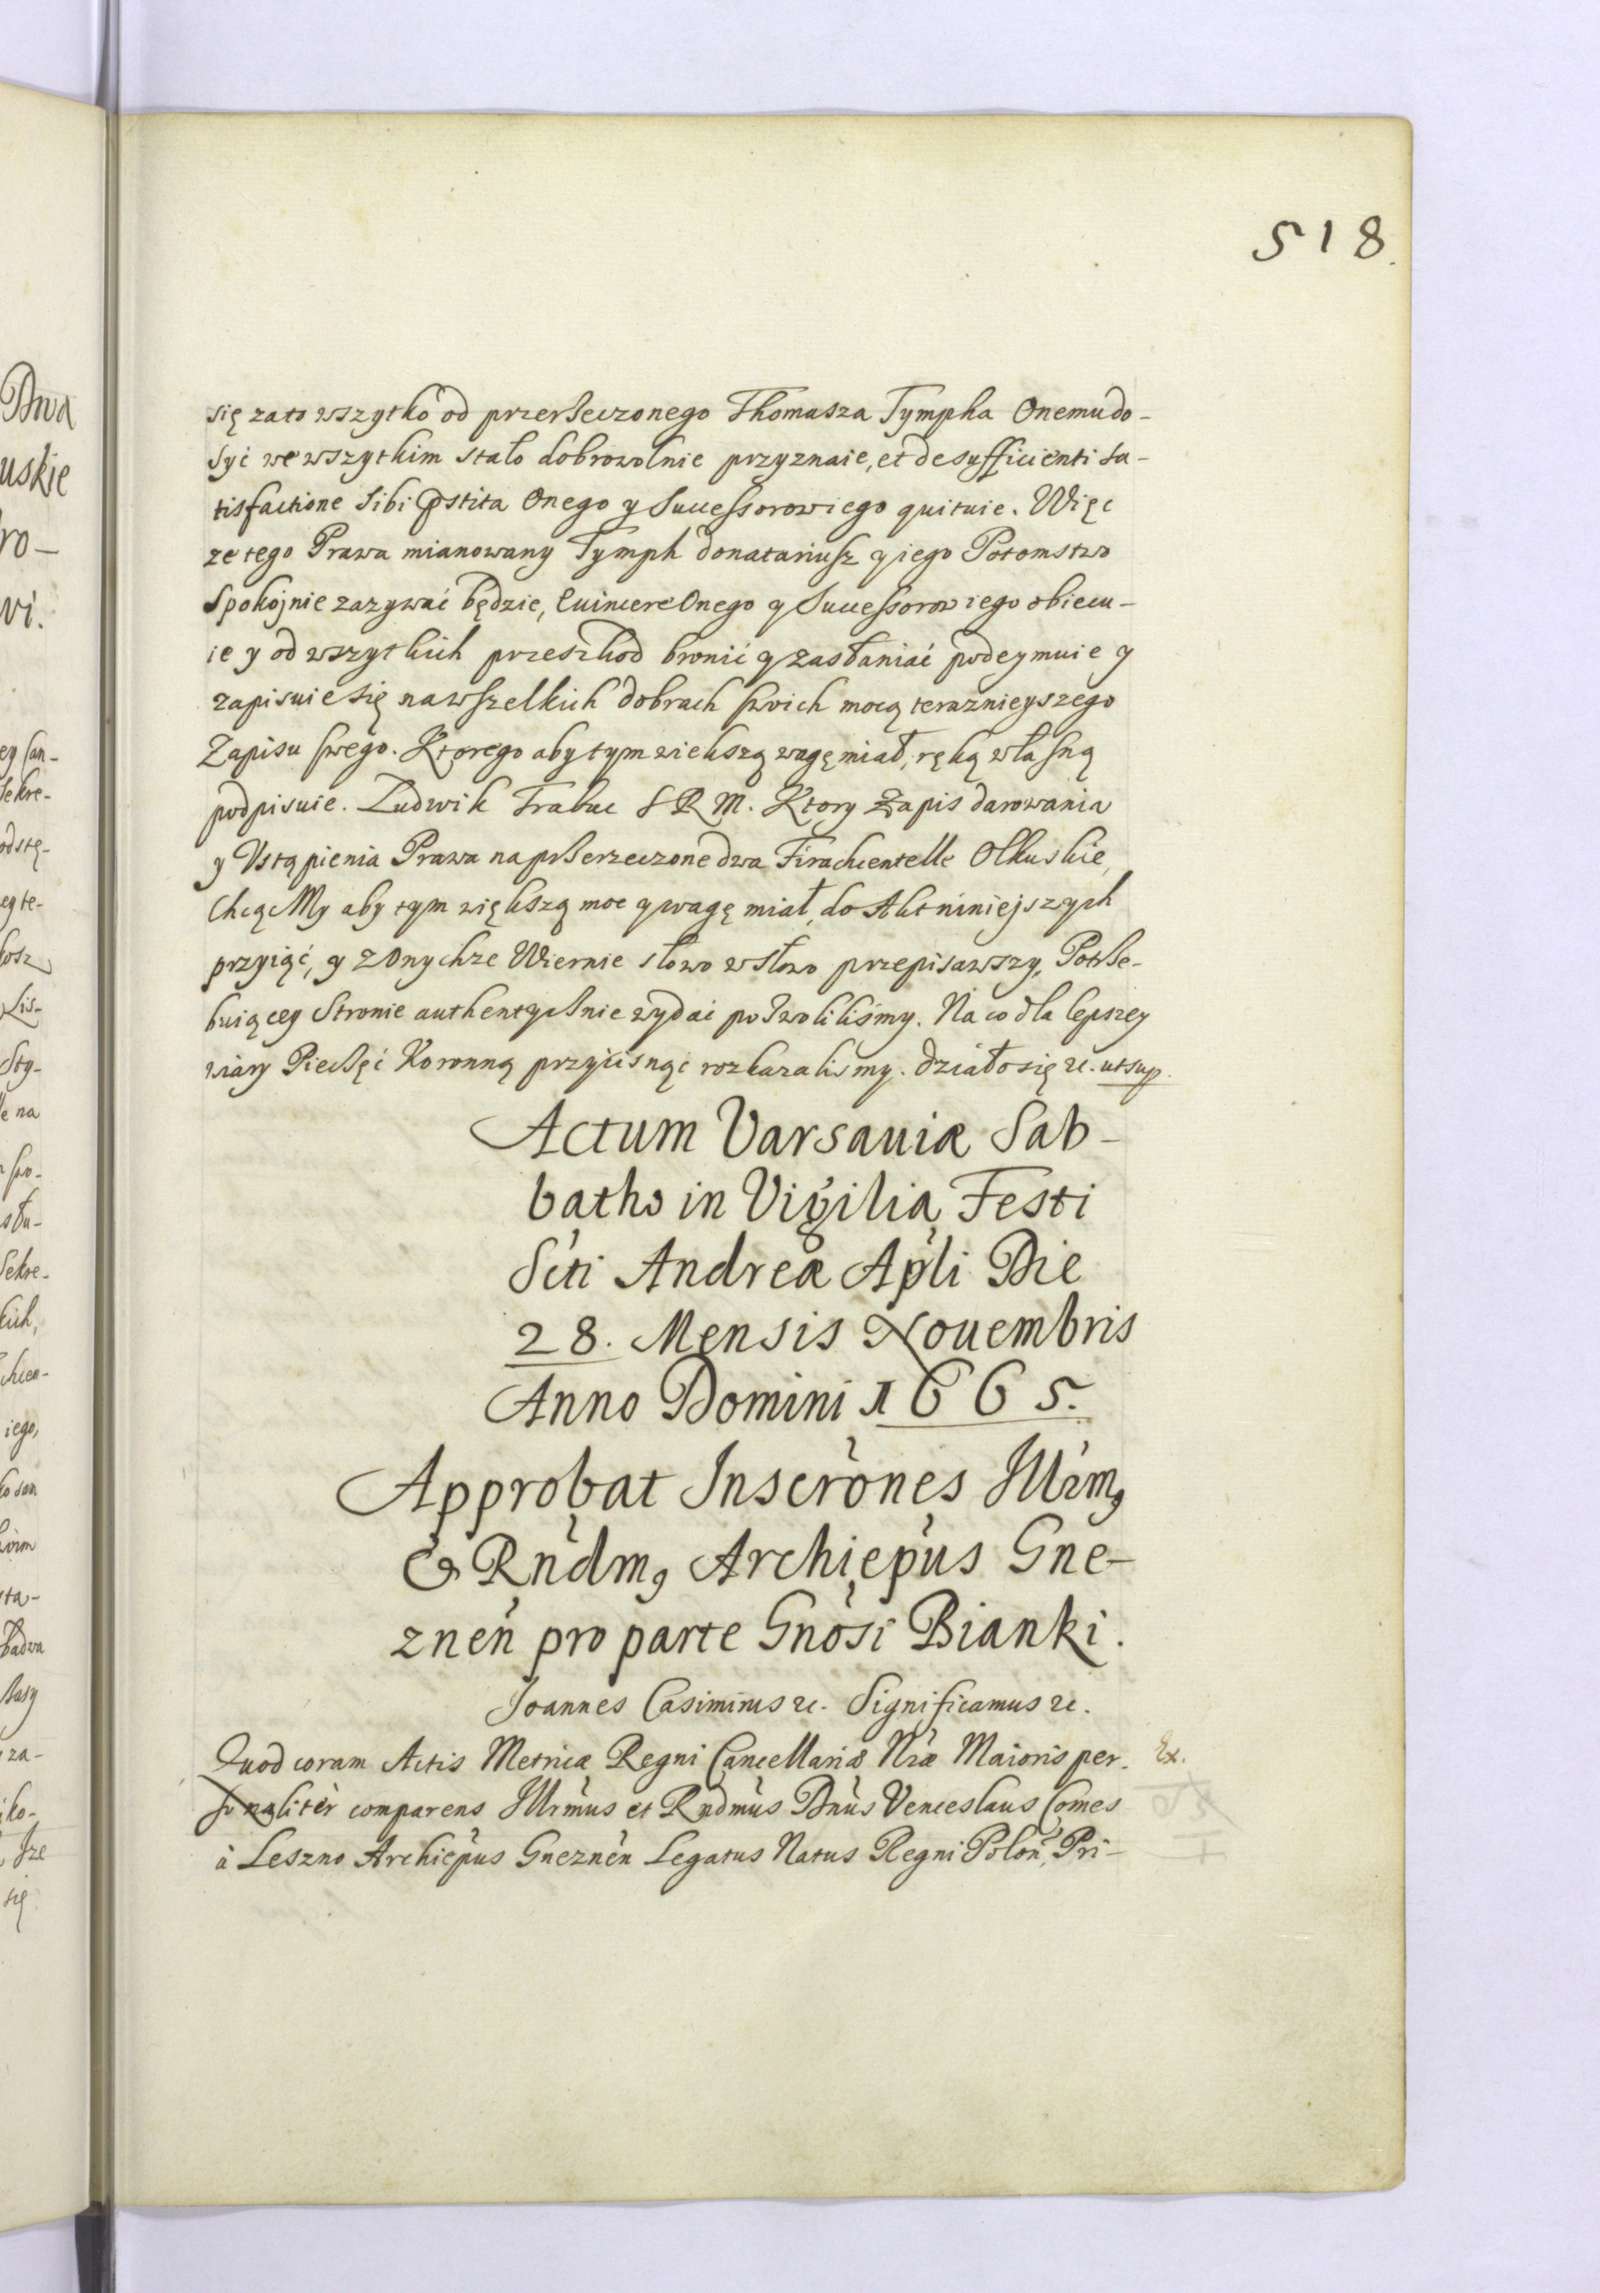 518.
się zato wszytko od przerzeczonego Thomasza Tympha Onemu do-
syć we wszytkim stało dobrowolnie przyznaie, et de sufficienti sa-
tisfactione sibi pstita Onego y Successorow iego quituie. Więc
ze tego Prawa mianowany Tymph donatariusz y iego Potomstwo
Spokojnie zazywać będzie, Euincere Onego y Successorow iego obiecu-
ie y od wszytkich przeszkod bronić y zasłaniać podeymuie y
zapisuie się na wszelkich dobrach swich mocą teraznieyszego
Zapisu swego. Ktorego aby tym wiekszą wagę miał, ręką własną
podpisuie. Ludwik Trabuc S R M. Ktory Zapis darowania
y Vstąpienia Prawa na przerzeczone dwa Firachentelle Olkuskie,
Chcąc My aby tym większą moc y wagę miał, do Akt niniejszych
przyiąć, y z Onychze Wiernie słowo w słowo przepisawszy, Potrze-
buiącey Stronie authentycznie wydać pozwoliliśmy. Na co dla lepszey
wiary Pieczęć Koronną przycisnąć rozkazalismy. Działo się &c. ut sup.
Actum Varsauiæ Sab-
batho in Vigilia Festi
Scti Andreæ Apli Die
28. Mensis Nouembris
Anno Domini 1665.
Approbat Inscrones Illrm9
& Rndm9 Archiepus Gne-
znen pro parte Gnosi Bianki.
Joannes Casimirus &c. Significamus &c.
Quod coram Actis Metricæ Regni Cancellariæ Nræ Maioris per- Ex.
sonaliter comparens Illrmus et Rndmus Dnus Venceslaus Comes
à Leszno Archiepus Gneznen Legatus Natus Regni Polon, Pri-